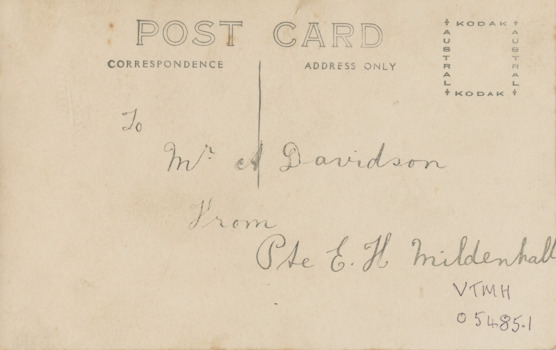 POST CARD
CORRESPONDENCE ADDRESS ONLY
KODAK
AUSTRAL
AUSTRAL
KODAK
To
Mr A Davidson
From
Pte E. H Mildenhall
VTMH
05485.1